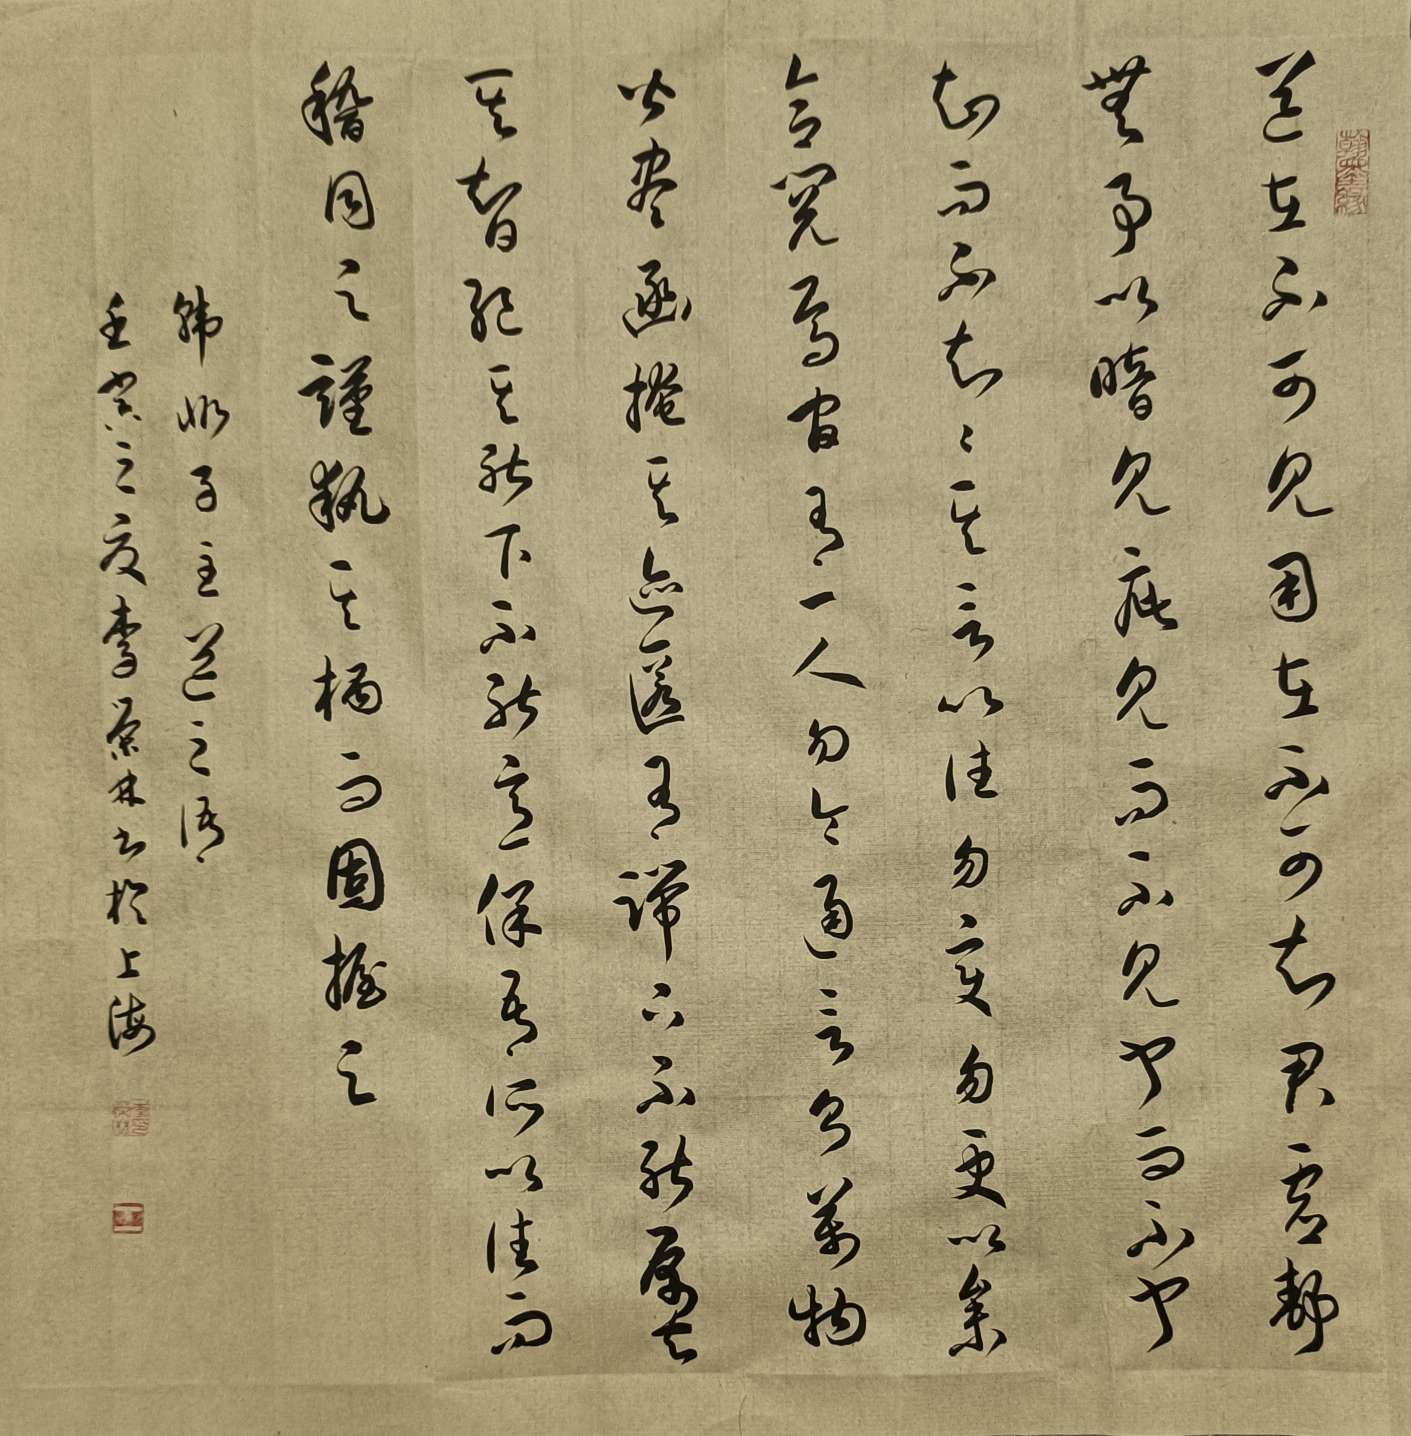 翰墨緣
道在不可見用在不可知君虛靜
無事以暗見疵見而不見聞而不聞
知而不知々其言以往勿變勿更以參
合閱焉官有一人勿令通言則萬物
皆盡函掩其迹匿有下不能原去
其智絕其能下不能意保吾所以往而
稽同之謹執其柄而固握之
韓非子主道之語
壬寅之夏李榮林書於上海